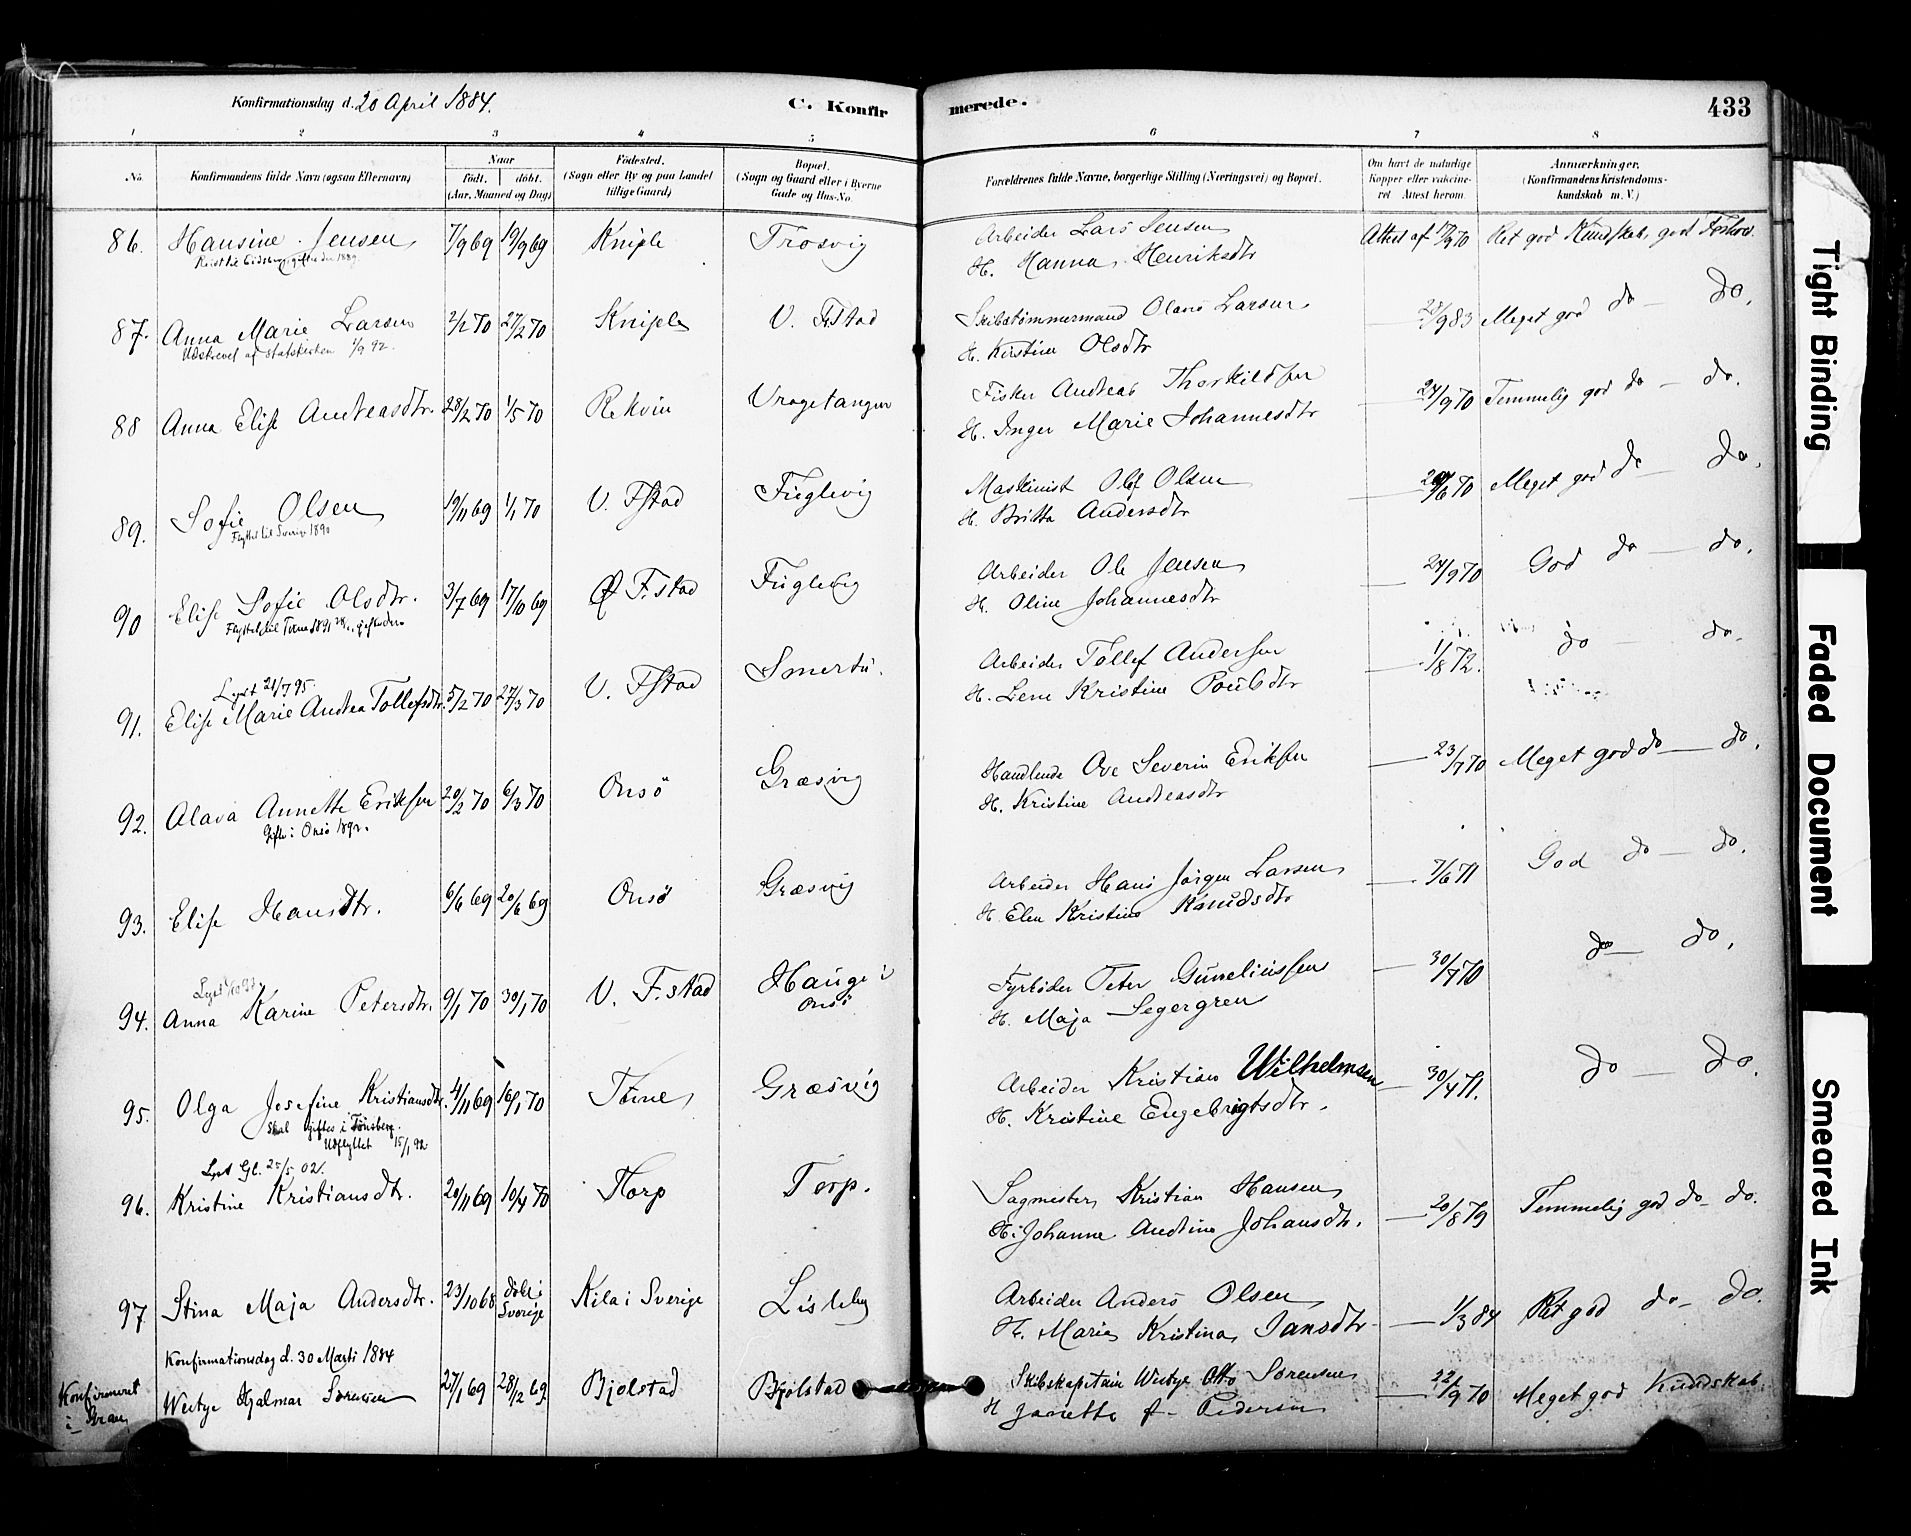 Konfirmationsdag d. 20 April 1884.
C. Konfirmerede.
433
1 2 3 4 5 6 7 8
No. Konfirmandens fulde Navn (ogsaa Efternavn) Naar født. døbt. (Aar, Maaned og Dag) Fødested. (Sogn eller By og paa Landet tillige Gaard) Bopæl. (Sogn og Gaard eller i Byerne Gade og Hus-No. Forældrenes fulde Navne, borgerlige Stilling (Næringsvei) og Bopæl. Om havt de naturlige Kopper eller vaccineret Attest herom. Anmærkninger. (Konfirmandens Kristendomskundskab m. V.)
86. Hansine Jensen 7/9 69 19/9 69 Kniple Trosvig Arbeider Lars Jensen Attest af 17/9 70 Ret god Kundskab, god Forhold.
H. Hanna Henriksdtr
87. Anna Marie Larsen 2/2 70 27/2 70 Kniple V. Fstad Skibstømmermand Olaus Larsen — 28/9 83 Meget god do — do.
Udskrevet af Statskirken 1/9 92. H. Kirstine Olsdtr
88 Anna Elise Andreasdtr. 28/2 70 1/5 70 Rekvin Vragetangen Fisker Andreas Thorkildsen — 24/9 70 Temmelig god do — do.
H. Inger Marie Johannesdtr
89. Sofie Olsen 19/11 69 1/1 70 V. Fstad Fuglevig Maskinist Olof Olsen — 20/6 70 Meget god do — do.
Flyttet til Sverige 1890 H. Britta Andersdtr
90 Elise Sofie Olsdtr. 3/7 69 17/10 69 Ø. F.stad Fuglevig Arbeider Ole Jensen — 24/9 70 God do — do.
H. Oline Johannesdtr
Lyst 21/7 95.
91. Elise Marie Andrea Tollefsdtr. 5/2 70 27/3 70 V. Fstad Smertu. Arbeider Tollef Andersen — 1/8 72. do — do.
H. Lene Kristine Poulsdtr
92. Alava Annette Eriksen 20/2 70 6/3 70 Onsö Græsvig Handlende Ove Severin Eriksen — 23/7 70 Meget god do — do.
Gift i Onsö 1892. H. Kristine Andreasdtr
93. Elise Hansdtr. 6/6 69 20/6 69 Onsö Græsvig Arbeider Hans Jørgen Larsen — 7/6 71 God do — do.
H. Elen Kristine Knudsdtr
94. Anna Karine Petersdtr. 9/1 70 30/1 70 V. F.stad Hauge i Onsö Fyrbøder Peter Gunneliussen — 30/7 70 do — do.
H. Maja Segergren
95. Olga Josefine Kristiansdtr. 4/11 69 16/1 70 Tune Græsvig Arbeider Kristian Wilhelmsen — 30/4 71. do — do.
skal giftes i Tønsberg. H. Kristine Engebrigtsdtr.
Udflyttet 15/1 92
Lyst Gl. 25/5 02.
96. Kristine Kristiansdtr. 20/11 69 10/4 70 Torp Torp. Sagmester Kristian Hansen — 20/8 79 Temmelig god do — do.
H. Johanne Andrine Johansdtr.
97 Stina Maja Andersdtr. 23/10 68 døbt i Sverige Kila i Sverige Lisleby Arbeider Anders Olsen — 1/3 84 Ret god do — do.
H. Maria Kristina Jansdtr
Konfirmationsdag d. 30 Marti 1884
Konfirmeret i Gran Westye Hjalmar Sørensen 27/1 69 28/2 69 Bjølstad Bjølstad Skibskaptain Westye Otto Sørensen — 22/9 70 Meget god Kundskab
H Janette f. Pedersen
Tight Binding
Faded Document
Smeared Ink